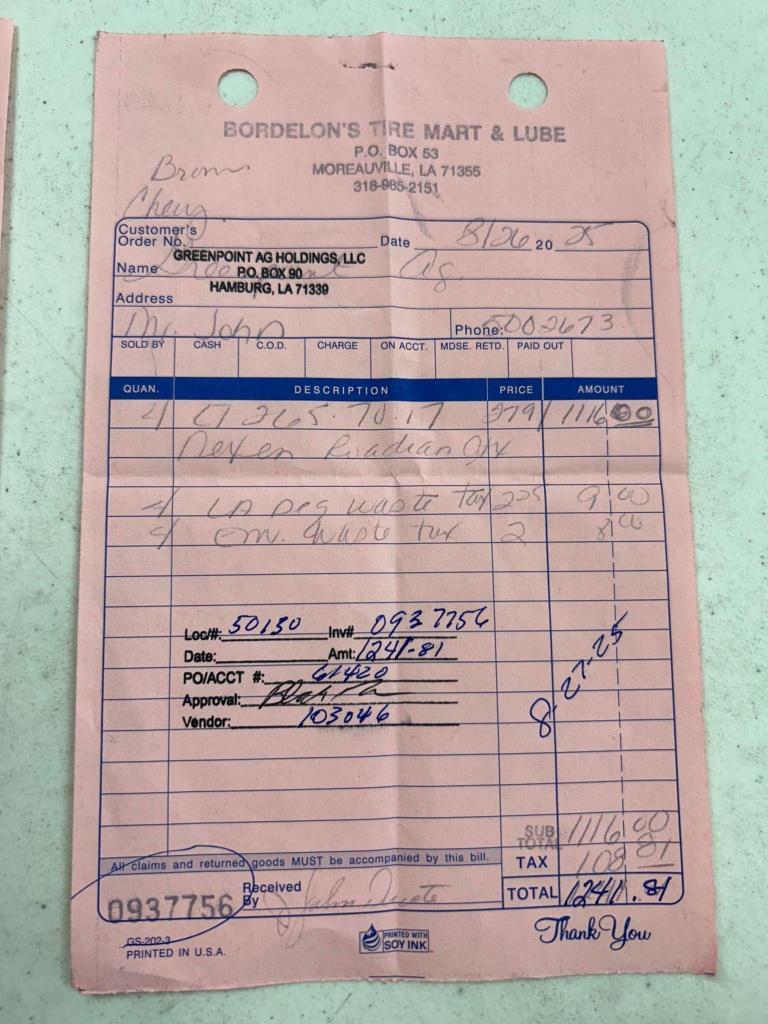 BORDELON'S TIRE MART & LUBE
P.O. BOX 53
MOREAUVILLE, LA 71355
318-985-2151
Brown
Chevy
Customer's
Order No.
Date 8/26 20 25
GREENPOINT AG HOLDINGS, LLC
Name P.O. BOX 90 Ag.
HAMBURG, LA 71339
Address
Mr. John Phone: 5002673
SOLD BY CASH C.O.D. CHARGE ON ACCT. MDSE. RETD. PAID OUT
QUAN. DESCRIPTION PRICE AMOUNT
4 LT 265.70.17 279 1116 00
Nexen Roadian
4 LA Deq waste tax 225 9 00
4 Em. waste tax 2 8 00
Loc/#: 50130 Inv# 0937756
Date: Amt: 1241-81
PO/ACCT #: 61420
Approval:
Vendor: 103046
8-27-25
SUB TOTAL 1116 00
All claims and returned goods MUST be accompanied by this bill. TAX 108 81
0937756 Received By John TOTAL 1241.81
GS-202-3
PRINTED IN U.S.A.
PRINTED WITH
SOY INK
Thank You